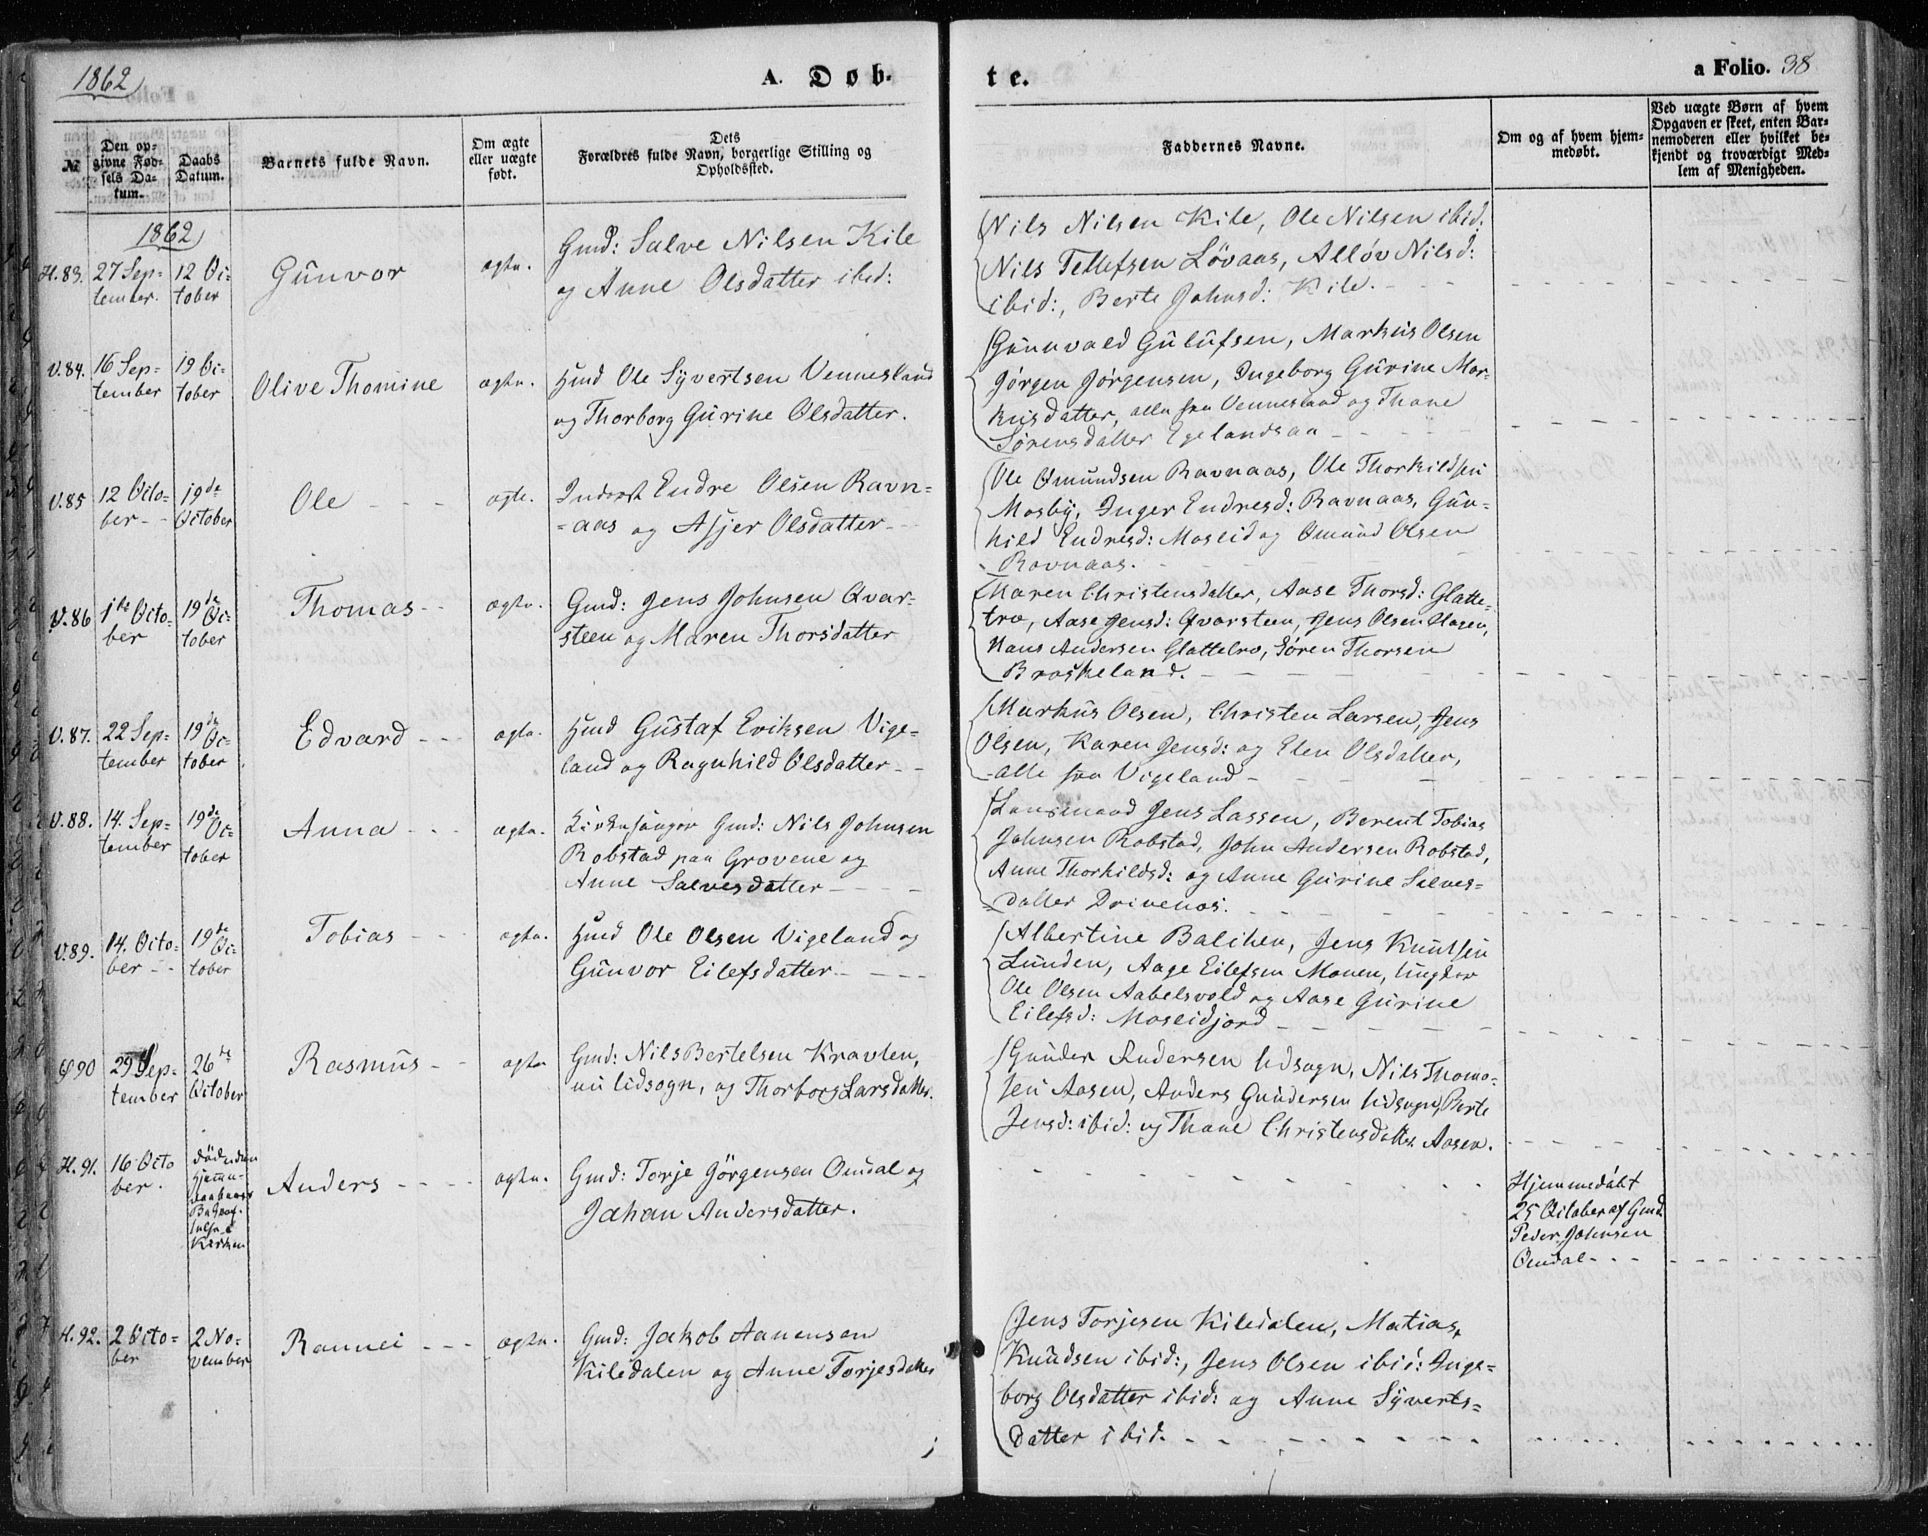 1862
A. Døb-
te.
a Folio. 38
№
Den op-
givne Fød-
sels Da-
tum.
Daabs
Datum.
Barnets fulde Navn.
Om ægte
eller uægte
født.
Dets
Forældres fulde Navn, borgerlige Stilling og
Opholdssted.
Faddernes Navne.
Om og af hvem hjem-
medøbt.
Ved uægte Børn af hvem
Opgaven er skeet, enten Bar-
nemoderen eller hvilket be-
kjendt og troværdigt Med-
lem af Menigheden.
1862
H. 83.
27 Sep-
tember.
12 Oc-
tober
Gunvor
ægte.
Gmd: Salve Nilsen Kile
og Anne Olsdatter ibid:
Nils Nilsen Kile, Ole Nilsen ibid:
Nils Tellefsen Lövaas, Alløv Nilsd:
ibid:, Berte Johnsd: Kile.
V. 84.
16 Sep-
tember
19 Oc-
tober
Olive Thomine
ægte.
Hmd Ole Syvertsen Vennesland
og Thorborg Gurine Olsdatter.
Gunuvald Gulufsen, Markus Olsen
Jørgen Jørgensen, Ingeborg Gurine Mar-
kusdatter, alle fra Vennesland og Thane
Sørensdatter Egelandsaa
V. 85
12 Octo-
ber
19de
October
Ole
ægte.
Inderst Endre Olsen Ravn-
-aas og Asjer Olsdatter
Ole Omundsen Ravnaas, Ole Thorkildsen
Mosby, Inger Endresd: Ravnaas, Gun-
hild Endresd: Moseid og Omund Olsen
Ravnaas.
V. 86
1ste Octo-
ber
19de Oc-
tober
Thomas
ægte.
Gmd: Jens Johnsen Qvar-
steen og Maren Thorsdatter
Maren Christensdatter, Aase Thorsd: Glatte-
tro, Aase Jensd: Qvarsteen, Jens Olsen Hagen,
Hans Andersen Glattetro, Søren Thorsen
Braskeland.
V. 87.
22 Sep-
tember
19de
Oc-
tober
Edvard
ægte.
Hmd Gustaf Eriksen Vige-
land og Ragnhild Olsdatter
Markus Olsen, Christen Larsen, Jens
Olsen, Karen Jensd: og Elen Olsdatter,
alle fra Vigeland
V. 88.
14. Sep-
tember
19de
Oc-
tober
Anna
ægte.
Kirkesanger Gmd: Nils Johnsen
Robstad paa Grovene og
Anne Salvesdatter
Lensmand Jens Lassen, Berent Tobias
Johnsen Robstad, John Andersen Robstad,
Anne Thorkildsd: og Anne Gurine Salves-
datter Drivenes.
V. 89.
14. Octo-
ber
19de
Oc-
tober
Tobias
ægte.
Hmd Ole Olsen Vigeland og
Gunvor Eilefsdatter
Albertine Balchen, Jens Knutsen
Lunden, Aage Eilefsen Monen, Ungkar
Ole Olsen Aabelsvold og Aase Gurine
Eilefsd: Moseidjord
90
29 Sep-
tember
26de
October
Rasmus
ægte
Gmd: Nils Bertelsen Kravlen,
nu Udsogn, og Thorborg Larsdatter.
Gunder Andersen Udsogn, Nils Thoma-
sen Aasen, Anders Gundersen Udsogn, Berte
Jensd: ibid: og Thane Christensdatter Aasen.
H. 91.
16 Octo
ber.
død inden
Kirken
Anders
ægte.
Gmd: Torje Jörgensen Omdal og
Johan Andersdatter.
Hjemmedöbt
25 October af Gmd
Peder Johnsen
Omdal
H. 92.
2 Octo-
ber
2 No-
vember
Rannei
ægte.
Gmd: Jakob Aanensen
Kiledalen og Anne Torjesdatter
Jens Torjesen Kiledalen, Matias
Knudsen ibid:, Jens Olsen ibid: Inge-
borg Olsdatter ibid: og Anne Syverts-
datter ibid.